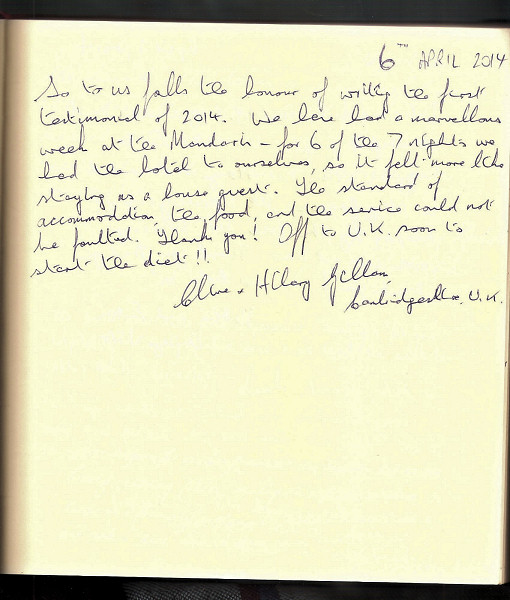 6TH APRIL 2014
So to us falls the honour of writing the first
testimonial of 2014. We have had a marvellous
week at the Mandarin – for 6 of the 7 nights we
had the hotel to ourselves, so it felt more like
staying as a house guest. The standard of
accommodation, the food, and the service could not
be faulted. Thank you! Off to U.K. soon to
start the diet!!
Clive & Hilary
Cambridgeshire, U.K.